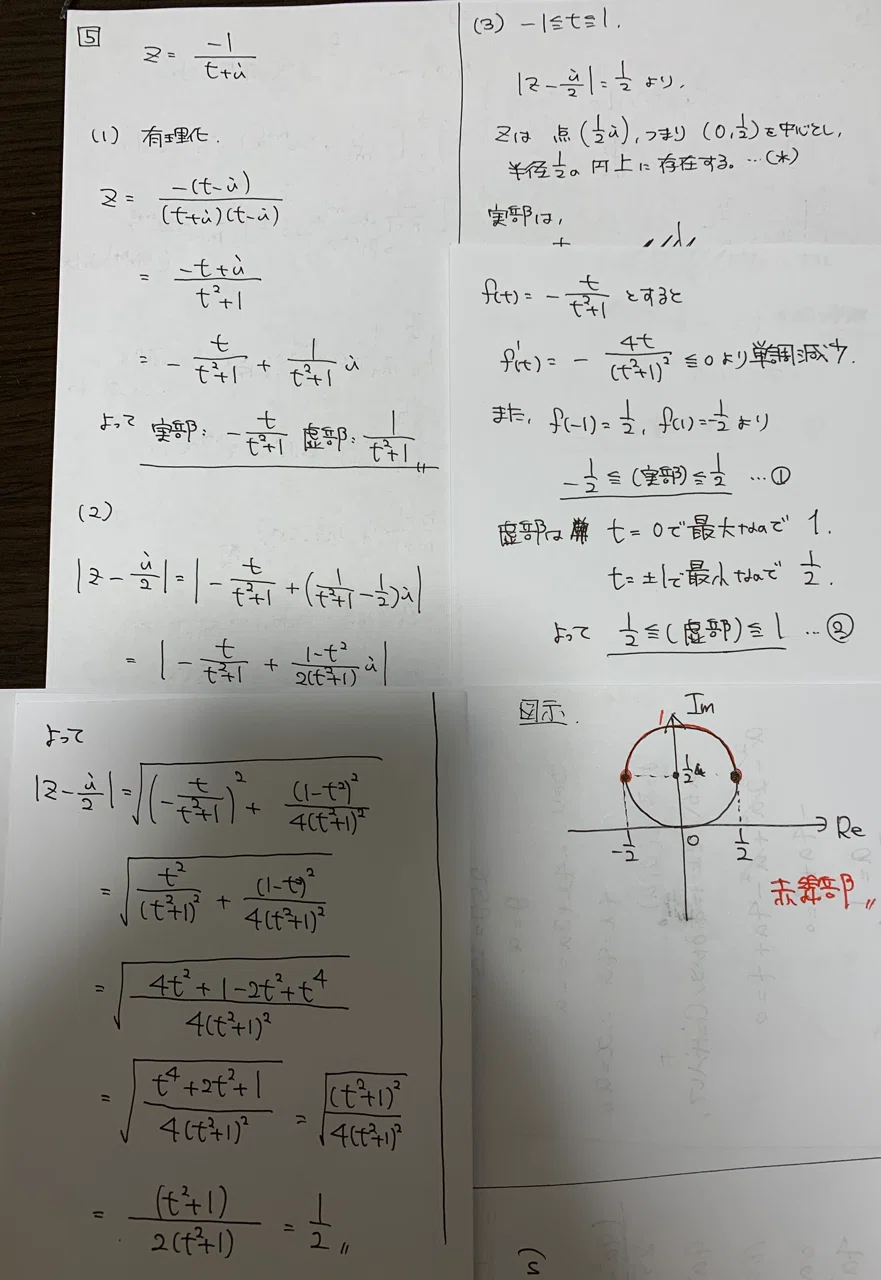 5
z = -1/(t+i)
(1) 有理化.
z = -(t-i)/((t+i)(t-i))
= (-t+i)/(t²+1)
= - t/(t²+1) + 1/(t²+1) i
よって 実部: - t/(t²+1) 虚部: 1/(t²+1) 〃
(2)
|z - i/2| = |- t/(t²+1) + (1/(t²+1) - 1/2)i|
= |- t/(t²+1) + (1-t²)/(2(t²+1)) i|
よって
|z - i/2| = √((- t/(t²+1))² + (1-t²)²/(4(t²+1)²))
= √(t²/(t²+1)² + (1-t²)²/(4(t²+1)²))
= √((4t²+1-2t²+t⁴)/(4(t²+1)²))
= √((t⁴+2t²+1)/(4(t²+1)²)) = √((t²+1)²/(4(t²+1)²))
= (t²+1)/(2(t²+1)) = 1/2 〃
(3) -1≦t≦1.
|z - i/2| = 1/2 より,
zは 点(1/2 i), つまり (0, 1/2)を中心とし,
半径1/2の円上に存在する。…(*)
実部は,
f(t) = - t/(t²+1) とすると
f'(t) = - 4t/(t²+1)² ≦0 より単調減少.
また, f(-1) = 1/2, f(1) = -1/2 より
-1/2 ≦ (実部) ≦ 1/2 …①
虚部は t = 0で最大なので 1.
t = ±1で最小なので 1/2.
よって 1/2 ≦ (虚部) ≦ 1 …②
図示.
Im
1
1/2 i
Re
-1/2
0
1/2
赤線部〃